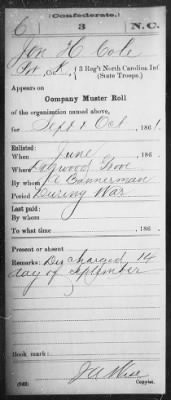 (Confederate.)
6 3 N.C.
Jon H Cole
Pvt, K, { 3 Reg't North Carolina Inf
(State Troops.)
Appears on
Company Muster Roll
of the organization named above,
for Sept & Oct, 1861.
Enlisted:
When June, 186 .
Where Grove
By whom Bannerman
Period During War
Last paid:
By whom
To what time , 186 .
Present or absent
Remarks: Discharged 14
day of September
Book mark:
J M
Copyist.